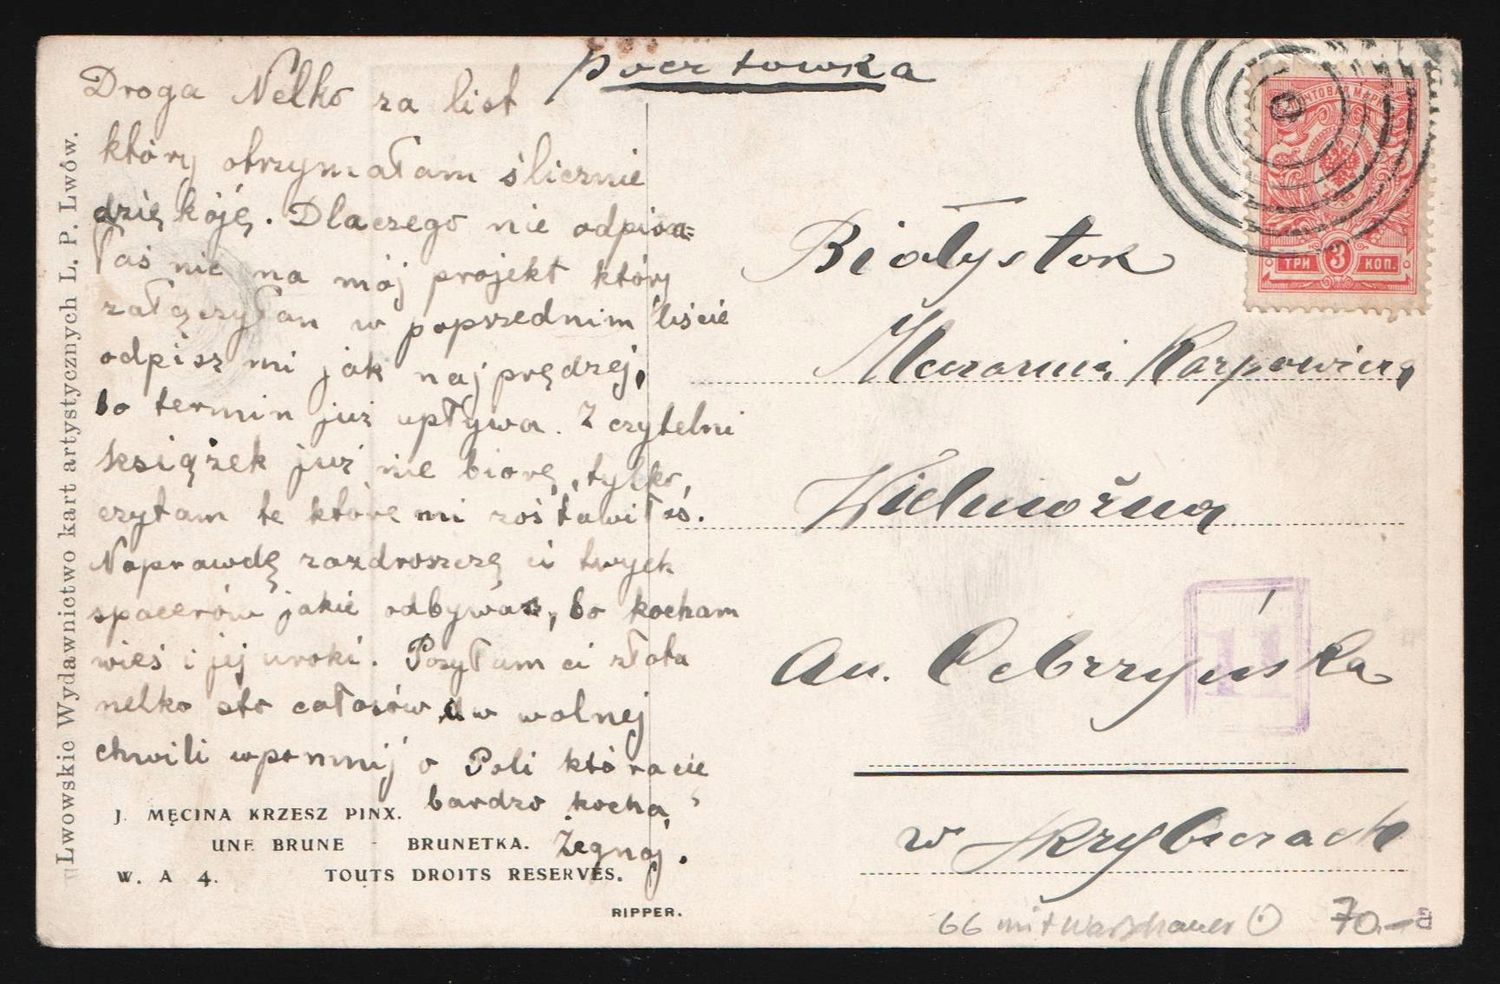 Pocztowka
Droga Nelko za list
który otrzymałam ślicznie
dziękóję. Dlaczego nie odpisa=
łaś nic na mój projekt który
załączyłam w poprzednim liście
odpisz mi jak najprędzej,
bo termin już upływa. Z czytelni
książek już nie biorę, tylko,
czytam te które mi zostawiłaś.
Naprawdę zazdroszczę ci twych
spacerów jakie odbywasz, bo kocham
wieś i jej uroki. Posyłam ci złota
nelko sto całusów, w wolnej
chwili wpomnij o Poli która cię
bardzo kocha,
Żegnaj.
Lwowskie Wydawnictwo kart artystycznych L. P. Lwów.
J. MĘCINA KRZESZ PINX.
UNE BRUNE - BRUNETKA.
W. A 4. TOUTS DROITS RESERVÉS.
RIPPER.
ПОЧТОВАЯ МАРКА
ТРИ 3 КОП.
Białystok
Karpowicza
Wielmożna
An. Cebrzyńska
w Skrybiczach
11
66 mit Warschauer
70.-